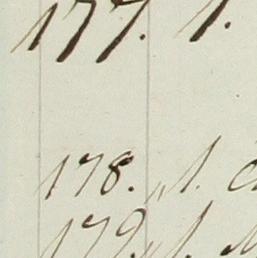 177. 1.
178. „ 1.
179. „ 1.